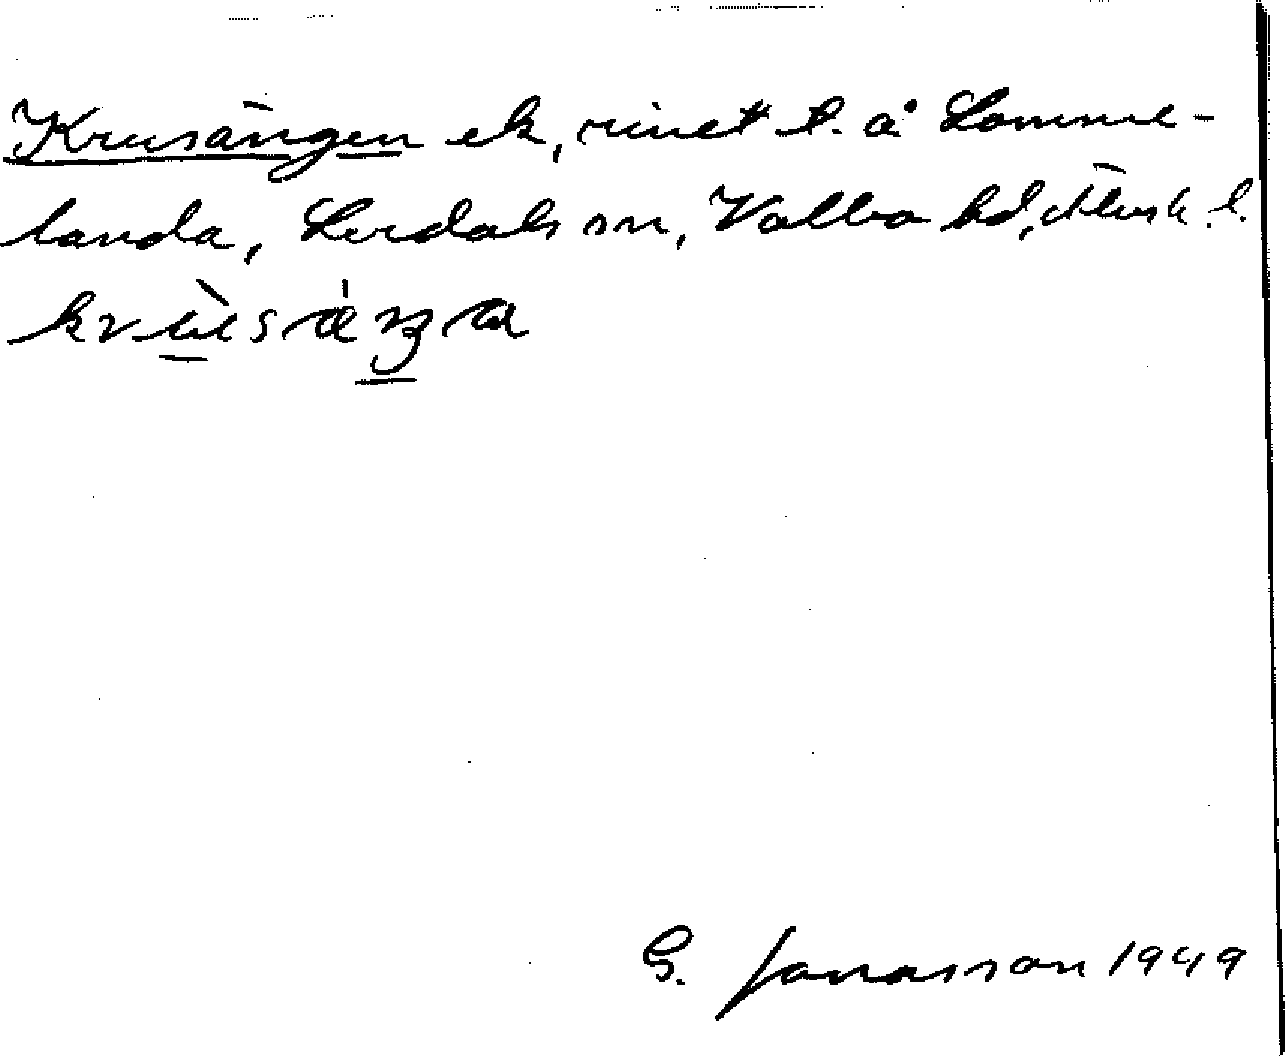 Krusängen ek, rivet t. å Lomme-
landa, Lerdals sn, Valbo hd, Älvsb. l.
krùsǽŋa
G. Jonasson 1949